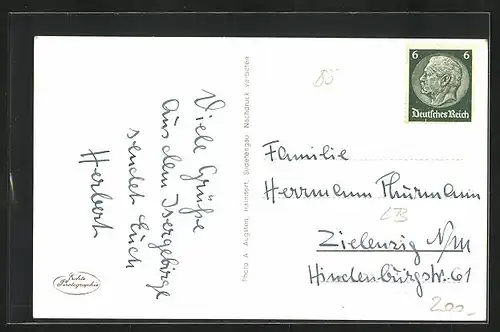 6 6
Deutsches Reich
85
Viele Grüße
aus dem Isergebirge
sendet Euch
Herbert
Photo A. Augsten, Haindorf, Sudetengau Nachdruck verboten
Echte
Photographie
Familie
Herrmann Thurmann
LB
Zielenzig N/M
Hindenburgstr. 61
200.-